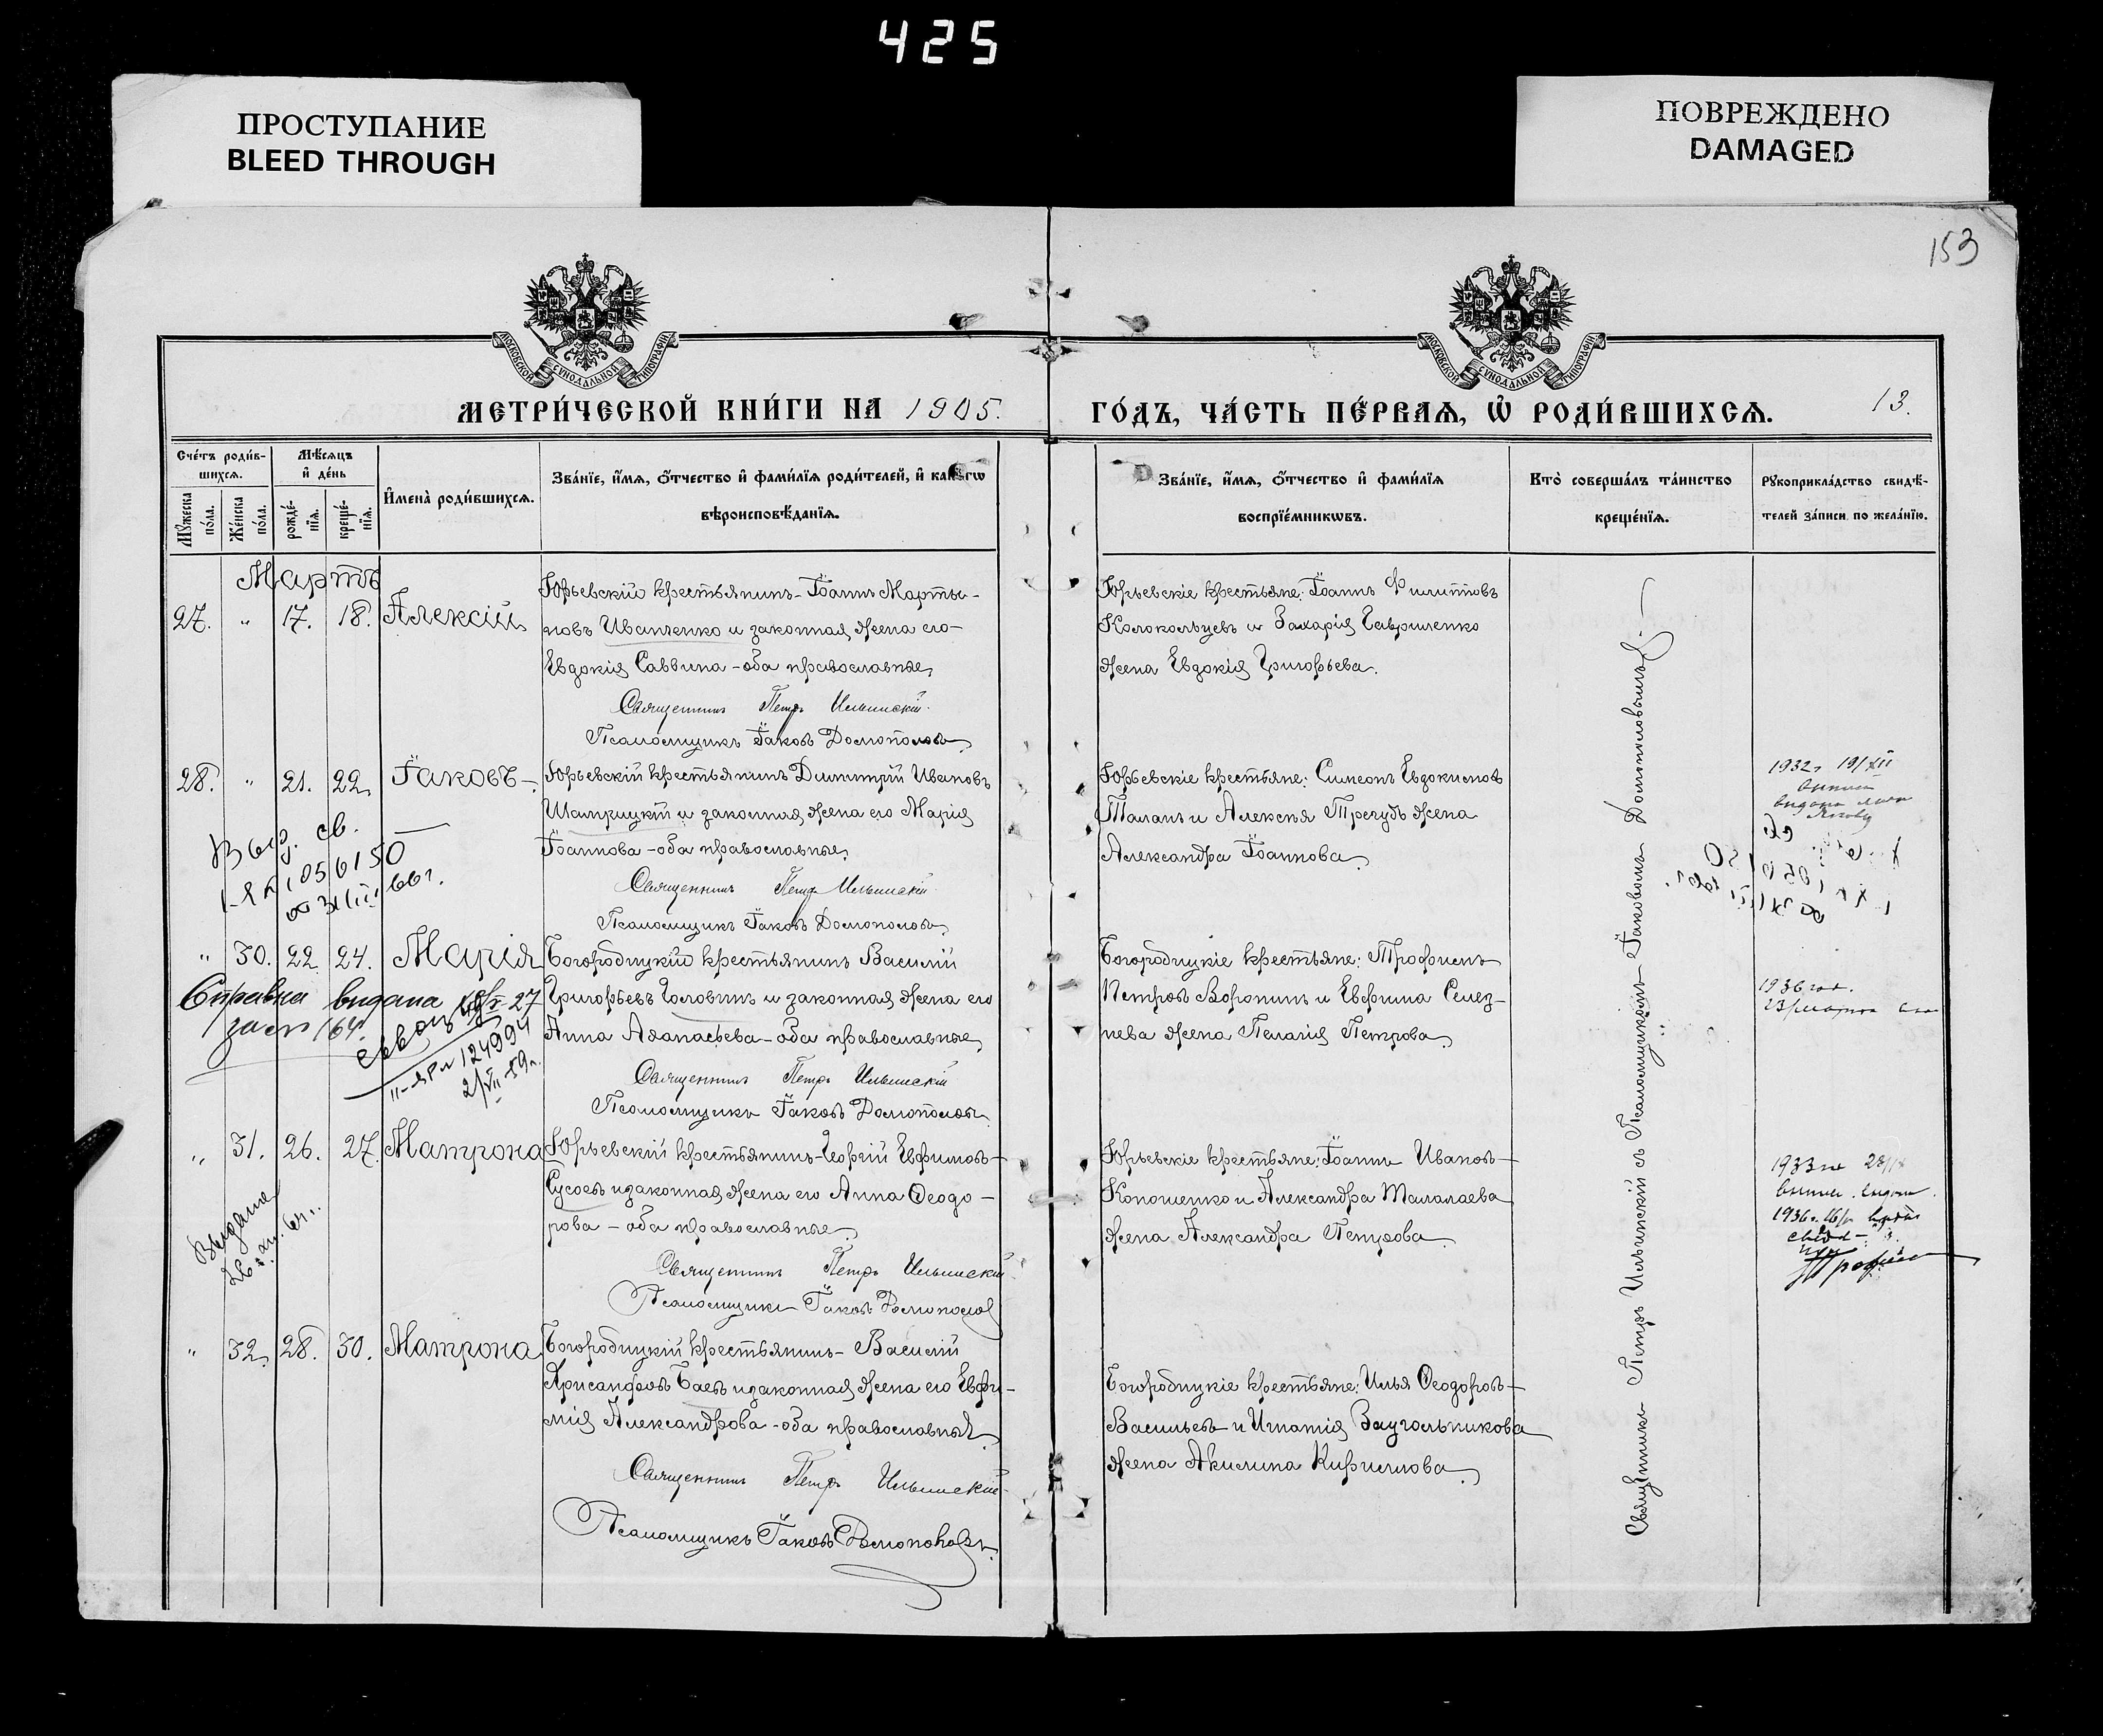 425
ПРОСТУПАНИЕ
BLEED THROUGH
ПОВРЕЖДЕНО
DAMAGED
153
МОСКОВСКОЙ СѴНОДАЛЬНОЙ ТИПОГРАФІИ
МОСКОВСКОЙ СѴНОДАЛЬНОЙ ТИПОГРАФІИ
МЕТРИ́ЧЕСКОЙ КНИ́ГИ НА 1905.
ГО́ДЪ, ЧА́СТЬ ПЕ́РВАѦ, Ѡ҆ РОДИ́ВШИХСѦ.
13.
Сче́тъ роди́в-
шихсѧ.
Мꙋ́жеска по́ла.
Же́нска по́ла.
Мѣ́сѧцъ
и҆ де́нь
рожде́-
нїѧ.
креще́-
нїѧ.
И҆мена̀ роди́вшихсѧ.
Зва́нїе, и҆́мѧ, ѻ҆́тчество и҆ фами́лїѧ роди́телей, и҆ како́гѡ
вѣроисповѣ́данїѧ.
Зва́нїе, и҆́мѧ, ѻ҆́тчество и҆ фами́лїѧ
воспрїе́мникѡвъ.
Кто̀ соверша́лъ та́инство
креще́нїѧ.
Рꙋкоприкла́дство свидѣ́-
телей за́писи по жела́нїю.
Мартъ
27. " 17. 18. Алексій
Юрьевскій крестьянинъ - Іоаннъ Марты-
новъ Иванченко и законная жена его -
Евдокія Саввина - оба православные.
Священникъ Петръ Ильинскій.
Псаломщикъ Іаковъ Домополовъ
Юрьевскіе крестьяне: Іоаннъ Филипповъ
Колокольцевъ и Захарія Гавриленко
жена Евдокія Григорьева.
28. " 21. 22. Іаковъ -
Юрьевскій крестьянинъ Димитрій Ивановъ
и законная жена его Марія
Іоаннова - оба православные.
Священникъ Петръ Ильинскій
Псаломщикъ Іаковъ Домополовъ
Юрьевскіе крестьяне: Симеонъ Евдокимовъ
Таланъ и Алексѣя жена
Александра Іоаннова.
1932 г 19/XII
Выд. св.
1056150
" 30. 22. 24. Марія
Богородицкій крестьянинъ Василій
Григорьевъ Головинъ и законная жена его
Анна Аѳанасьева - оба православные.
Священникъ Петръ Ильинскій
Псаломщикъ Іаковъ Домополовъ
Богородицкіе крестьяне: Трофимъ
Петровъ Воронинъ и Евфима Селез-
нева жена Пелагія Петрова.
Справка выдана
124994
2/VII-59г.
1936 год.
23/марта
" 31. 26. 27. Матрона
Юрьевскій крестьянинъ - Георгій Ефимовъ
Сусоевъ и законная жена его Анна Ѳеодо-
рова - оба православные.
Священникъ Петръ Ильинскій.
Псаломщикъ Іаковъ Домополов
Юрьевскіе крестьяне: Іоаннъ Ивановъ
Кононенко и Александра Талалаева
жена Александра Петрова.
" 32. 28. 30. Матрона
Богородицкій крестьянинъ - Василій
Хрисанфовъ Баевъ и законная жена его Евфи-
мія Александрова - оба православные.
Священникъ Петръ Ильинскій
Псаломщикъ Іаковъ Домополовъ.
Богородицкіе крестьяне: Илья Ѳеодоровъ
Васильевъ и Игнатія Заугольникова
жена Акилина Кириллова.
Священникъ Петръ Ильинскій съ Псаломщикомъ Іаковомъ Домополовымъ